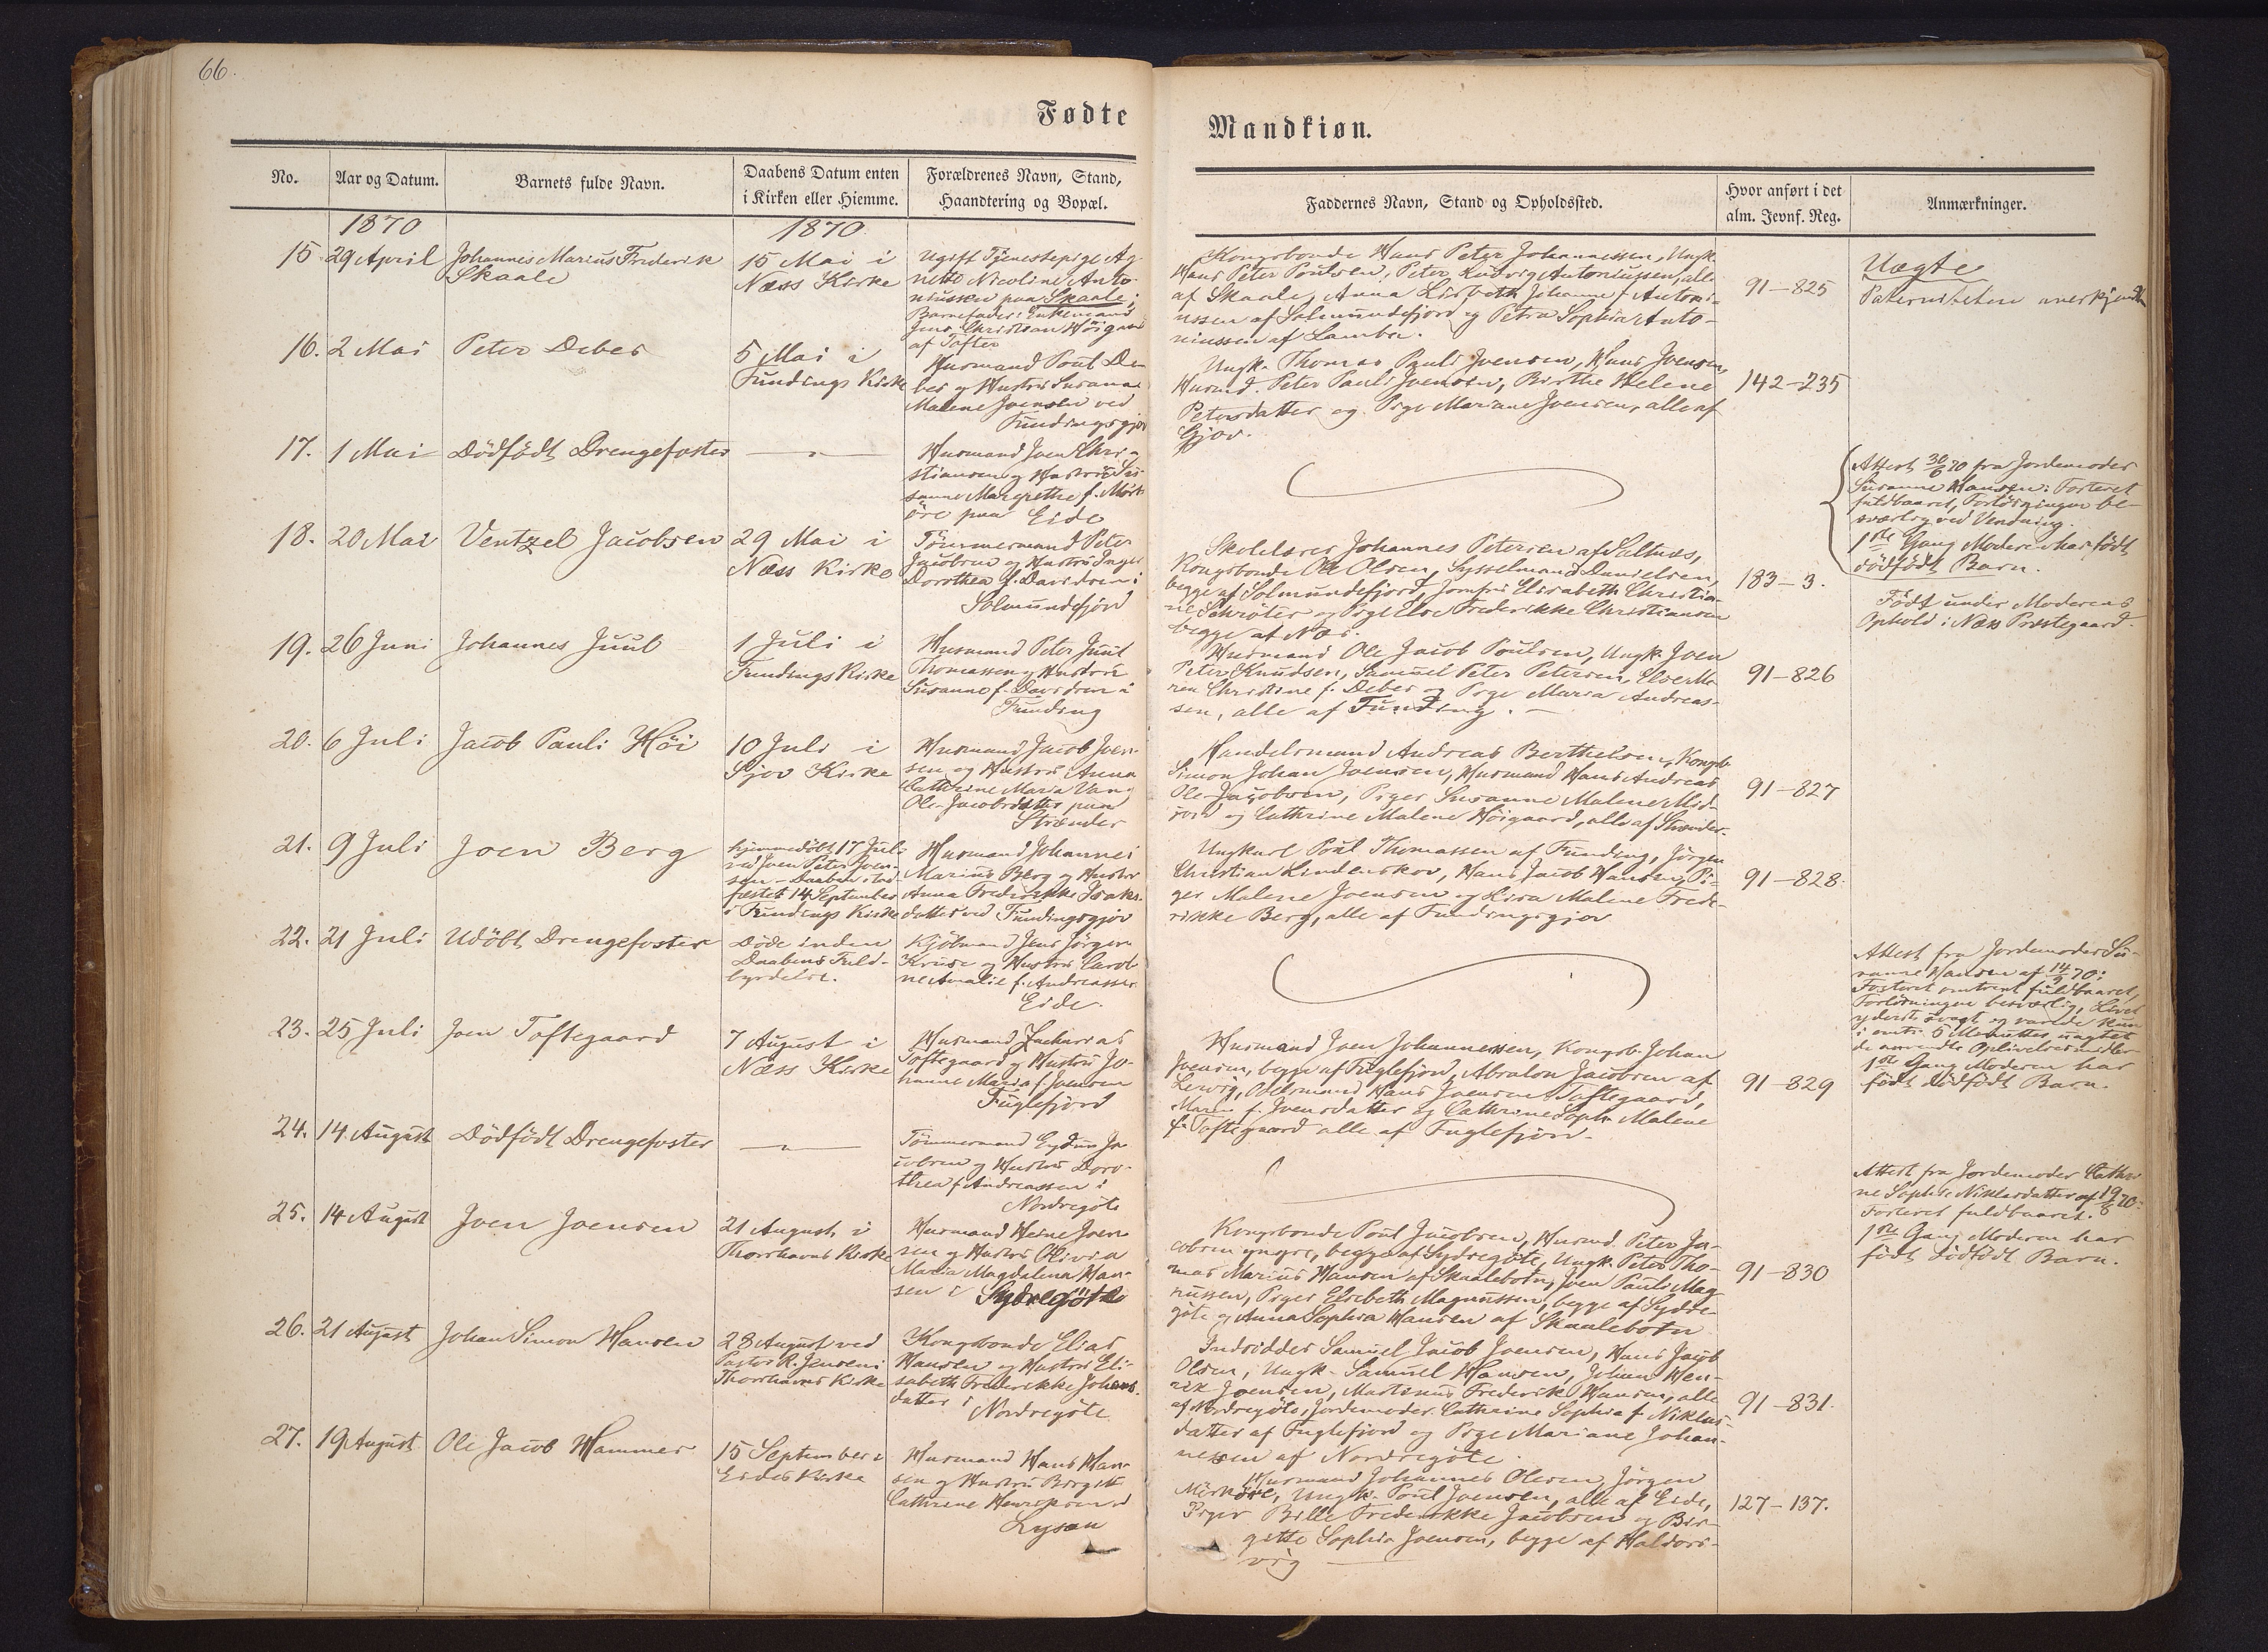 66.
Fødte
Mandkiøn.
No.
Aar og Datum.
Barnets fulde Navn.
Daabens Datum enten
i Kirken eller Hiemme.
Forældrenes Navn, Stand,
Haandtering og Bopæl.
Faddernes Navn, Stand og Opholdssted.
Hvor anført i det
alm. Jevnf. Reg.
Anmærkninger.
1870
1870
15
29 April
Johannes Marius Frederik
Skaale
15 Mai i
Næss Kirke
Ugift Tjenestepige Ag-
nette Nicoline Anto-
niussen paa Skaale;
Barnefader: Enkemand
Jens Christian Höigaard
af Tofter
Kongsbonde Hans Peter Johannessen, Ungk.
Hans Peter Poulsen, Peter Ludvig Antoniussen, alle
af Skaale, Anna Lisbeth Johanne f. Antoni-
ussen af Solmundefjord og Petra Sophia Anto-
niussen af Lamba.
91-825
Uægte
Paterniteten anerkjendt
16.
2 Mai
Peter Debes
5 Mai i
Fundings Kirke
Husmand Poul De-
bes og Hustru Susanna
Malene Joensen ved
Fundingsgjov
Ungk. Thomas Pauli Joensen, Hans Joensen,
Husmd. Peter Pauli Joensen, Birthe Helene
Petersdatter og Pige Mariane Joensen, alle af
Gjov.
142-235
17.
1 Mai
Dödfödt Drengefoster
—"—
Husmand Joen Chri-
stiansen og Hustru Su-
sanne Margrethe f. Mörk-
öre paa Eide
Attest 30/6 70 fra Jordemoder
Susanne Hansen: Fosteret
fuldbaaret, Forlösningen be-
sværlig ved Vending.
1ste Gang Moderen har födt
dödfödt Barn.
18.
20 Mai
Ventzel Jacobsen
29 Mai i
Næss Kirke
Tömmermand Peter
Jacobsen og Hustru Inger
Dorothea f. Davidsen i
Solmundefjord
Skolelærer Johannes Petersen af Saltnæs,
Kongsbonde Ole Olsen, Sysselmand Danielsen,
begge af Solmundefjord, Jomfru Elisabeth Christia-
ne Schröter og Pige Else Frederikke Christiansen
begge af Næs.
183-3.
Födt under Moderens
Ophold i Næss Præstegaard.
19.
26 Juni
Johannes Juul
1 Juli i
Fundings Kirke
Husmand Peter Juul
Thomassen og Hustru
Susanne f. Davidsen i
Funding
Husmand Ole Jacob Poulsen, Ungk. Joen
Peter Knudsen, Samuel Peter Petersen, Else Ma-
ren Christine f. Debes og Pige Maria Andreas-
sen, alle af Funding.
91-826
20.
6 Juli
Jacob Pauli Höi
10 Juli i
Gjov Kirke
Husmand Jacob Joen-
sen og Hustru Anna
Cathrine Maria
Ole Jacobsdatter paa
Strænder
Handelsmand Andreas Berthelsen, Kongsb.
Simon Johan Joensen, Husmand Hans Andreas
Ole Jacobsen, Piger Susanne Malene Mid-
jord og Cathrine Malene Höigaard, alle af Strænder.
91-827
21.
9 Juli
Joen Berg
hjemmedöbt 17 Juli
ved Joen Peter Joen-
sen - Daaben stad-
fæstet 14 September
i Fundings Kirke
Husmand Johannes
Marius Berg og Hustru
Anna Frederikke Isaks-
datter ved Fundingsgjov
Ungkarl Poul Thomassen af Funding, Jörgen
Christian Lindenskov, Hans Jacob Hansen, Pi-
ger Malene Joensen og Lisa Malene Frede-
rikke Berg, alle af Fundingsgjov
91-828.
22.
21 Juli
Udöbt Drengefoster
Döde inden
Daabens Fuld-
byrdelse.
Kjöbmand Jens Jörgen
Kruse og Hustru Caroli-
ne Amalie f. Andreassen
Eide.
Attest fra Jordemoder Su-
sanne Hansen af 14/9 70:
Fosteret omtrent fuldbaaret,
Forlösningen besværlig, Livet
yderst svagt og varede kun
i omtr. 5 Minutter uagtet
de anvendte Oplivelsesmidler
1ste Gang Moderen har
födt dödfödt Barn.
23.
25 Juli
Joen Toftegaard
7 August i
Næss Kirke
Husmand Zacharias
Toftegaard og Hustru Jo-
hanne Maria f. Joensen
Fuglefjord
Husmand Joen Johannessen, Kongsb. Johan
Joensen, begge af Fuglefjord, Absalon Jacobsen af
Lervig, Husmand Hans Joensen Toftegaard,
Maren f. Joensdatter og Cathrine Soph. Malene
f. Toftegaard alle af Fuglefjord.
91-829
24.
14 August
Dödfödt Drengefoster
—"—
Tömmermand Gydun Ja-
cobsen og Hustru Doro-
thea f. Andreassen i
Nordregöte
Attest fra Jordemoder Cathri-
ne Sophie Niklasdatter af 19/8 70:
Fosteret fuldbaaret.
1ste Gang Moderen har
födt dödfödt Barn.
25.
14 August
Joen Joensen
21 August i
Thorshavns Kirke
Husmand Heine Joen-
sen og Hustru Olivia
Maria Magdalena Han-
sen i Sydregöte
Kongsbonde Poul Jacobsen, Husmd. Peter Ja-
cobsen yngre, begge af Sydregöte, Ungk. Peter Tho-
mas Marius Hansen af Skaalebotn, Joen Pauli Mag-
nussen, Piger Elsebeth Magnussen, begge af Sydre-
göte og Anna Sophia Hansen af Skaalebotn
91-830
26.
21 August
Johan Simon Hansen
28 August ved
Pastor R. Jensen i
Thorshavns Kirke
Kongsbonde Elias
Hansen og Hustru Eli-
sabeth Frederikke Johans-
datter i
Nordregöte
Indsidder Samuel Jacob Joensen, Hans Jacob
Olsen, Ungk. Samuel Hansen, Johan Hen-
rik Joensen, Martinus Frederik Hansen, alle
af Nordregöte, Jordemoder Cathrine Sophia f. Niklas-
datter af Fuglefjord og Pige Mariane Johan-
nesen af Nordregöte.
91-831.
27.
19 August
Ole Jacob Hammer
15 September i
Eides Kirke
Husmand Hans Han-
sen og Hustru Birgitte
Cathrine Henriksen i
Lysan
Husmand Johannes Olesen, Jörgen
Mörköre, Ungk. Poul Joensen, alle af Eide,
Piger Bille Frederikke Jacobsen og Bir-
gette Sophia Joensen, begge af Haldors-
vig
127-137.